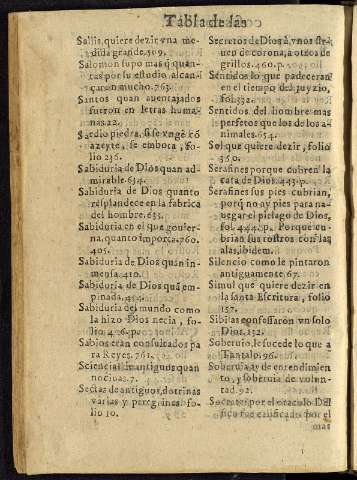 Tabla de las
Saliis, quiere dezir vna me-
dida grande. 509.
Salomon supo mas q̃ quan-
tos por su estudio alcan-
çaron mucho. 763.
Santos quan auentajados
fueron en letras huma-
nas. 22.
Sardio piedra, si se vnge cõ
azeyte, se emboca, fo-
lio 236.
Sabiduria de Dios quan ad-
mirable. 634.
Sabiduria de Dios quanto
resplandece en la fabrica
del hombre. 635.
Sabiduria en el que gouier-
na, quanto importa. 760.
405.
Sabiduria de Dios quan in-
mensa. 410.
Sabiduria de Dios quã em-
pinada. 454.
Sabiduria del mundo como
la hizo Dios necia, fo-
lio
Sabios eran consultados pa
ra Reyes. 761.
Sciencias in antiguos quan
nociuas. 7.
Sectas de antiguos, dotrinas
varias y peregrinas, fo-
lio 10.
Secretos de Dios à vnos sir-
uen de corona, a otros de
grillos. 460. p.
Sentidos lo que padeceran
en el tiempo del juyzio,
fol. 332.
Sentidos del hombre mas
perfetos que los de los a-
nimales. 654.
Sol que quiere dezir, folio
350.
Serafines porque cubren la
cara de Dios. 443. p.
Serafines sus pies cubrian,
porq̃ no ay pies para na-
uegar el pielago de Dios,
fol. 444. p. Porque cu-
brian sus rostros con las
alas, ibidem.
Silencio como le pintaron
antiguamente. 67.
Simul que quiere dezir en
la santa Escritura, folio
157.
Sibilas confessaron vn solo
Dios. 152.
Soberuio, le sucede lo que a
Tantalo. 96.
Soberuia ay de entendimien
to, y soberuia de volun-
tad. 92.
Socrates por el oraculo Del
fico fue calificado por el
mas